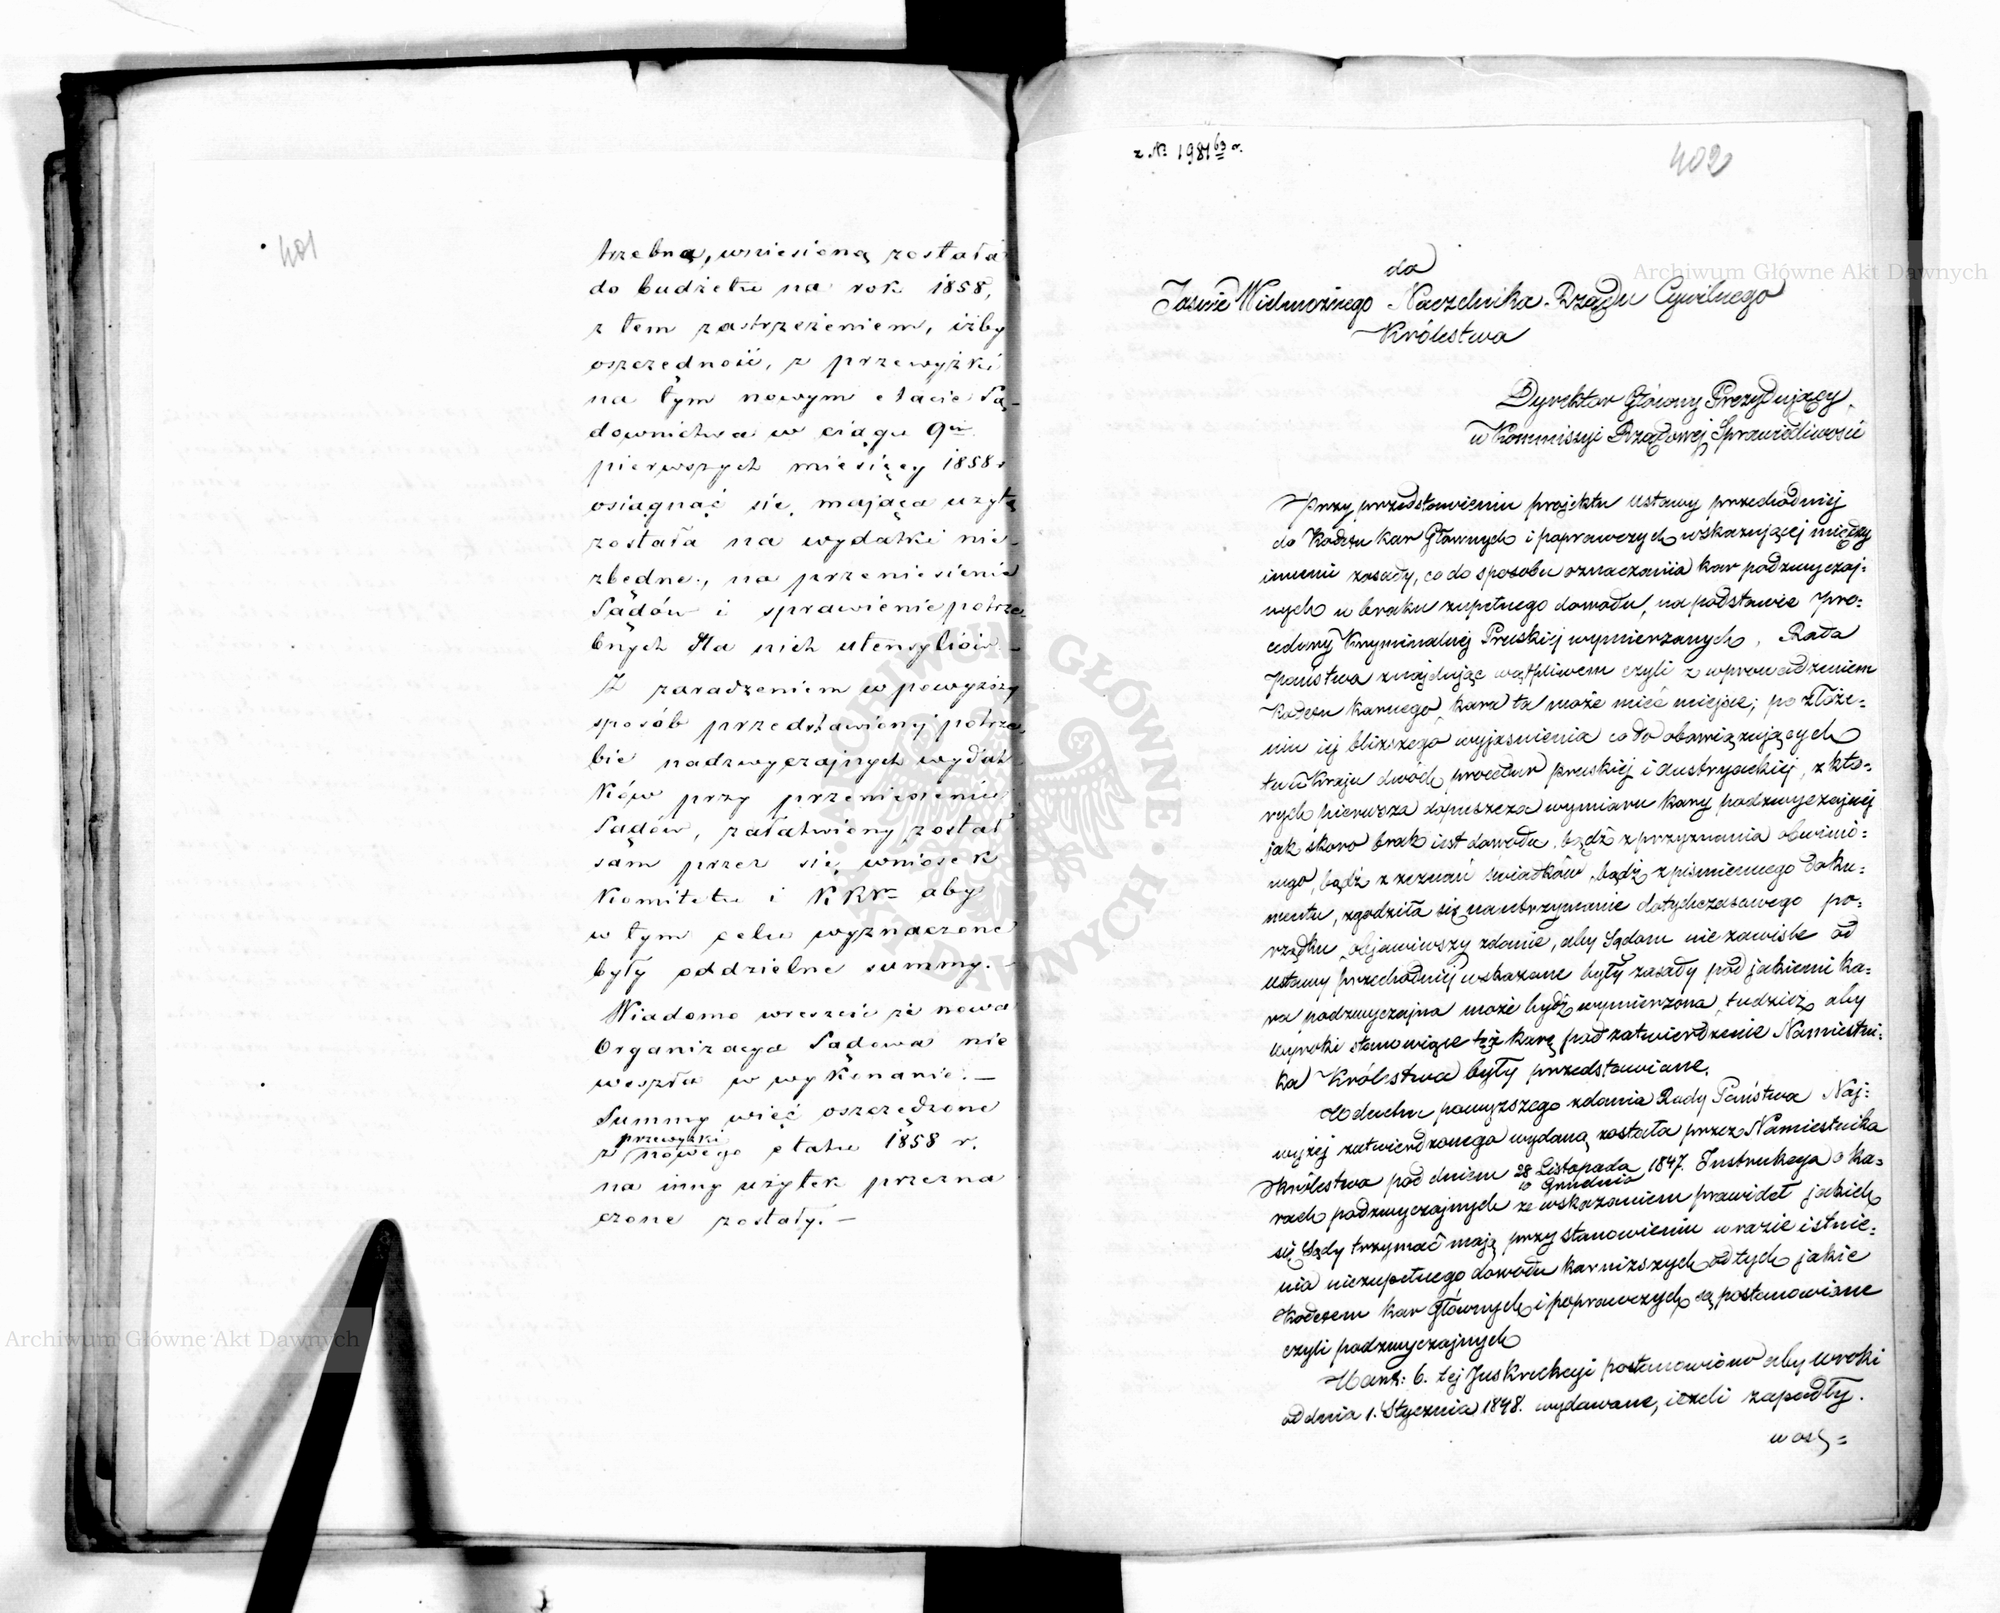 401
trzebną, wniesioną została
do budżetu na rok 1858,
z tem zastrzeżeniem, iżby
oszczędność, z przewyżki
na tym nowym etacie Są-
downictwa w ciągu 9ciu
pierwszych miesięcy 1858 r
osiągnąć się, mająca użytą
została na wydatki nie-
zbędne, na przeniesienie
Sądów i sprawienie potrze-
bnych dla nich utensyliów.—
Z zaradzeniem w powyższy
sposób przedstawionej potrze-
bie nadzwyczajnych wydat
ków przy przeniesieniu
Sądów, załatwiony został
sam przez się, wniosek
Komitetu i KRW— aby
w tym celu wyznaczone
były oddzielne summy.—
Wiadomo wreszcie że nowa
Organizacya Sądowa nie
weszła w wykonanie.—
Summy więc oszczędzone
przewyżki
z nowego etatu 1858 r.
na inny użytek przezna
czone zostały.—
z No 1981 63 r.
402
do
Jaśnie Wielmożnego Naczelnika Rządu Cywilnego
Królestwa
Dyrektor Główny Prezydujący
w Kommissyi Rządowej Sprawiedliwości
Przy przedstawieniu projektu ustawy przechodniej
do Kodexu kar Głównych i poprawczych wskazującej między
innemi zasady, co do sposobu oznaczania kar podzwyczaj=
nych w braku zupełnego dowodu, na podstawie pro=
cedury Kryminalnej Pruskiej wymierzanych, Rada
Państwa znajdując wątpliwem czyli z wprowadzeniem
Kodexu karnego, kara ta może mieć miejsce; po złoże=
niu jej bliższego wyjaśnienia co do obowiązujących
tu w kraju dwóch procedur pruskiej i austryackiej, z któ=
rych pierwsza dopuszcza wymiaru kary podzwyczajnej
jak skoro brak jest dowodu, bądź z przyznania obwinio=
nego, bądź z zeznań świadków, bądź z piśmiennego doku=
mentu, zgodziła się na utrzymanie dotychczasowego po=
rządku, objawiwszy zdanie, aby Sądom niezawiśle od
ustawy przechodniej wskazane były zasady pod jakiemi ka=
ra podzwyczajna może bydź wymierzona, tudzież aby
wyroki stanowiące tęż karę pod zatwierdzenie Namiestni=
ka Królestwa były przedstawiane.
W duchu powyższego zdania Rady Państwa Naj=
wyżej zatwierdzonego wydaną została przez Namiestnika
Królestwa pod dniem 28 Listopada 1847. Instrukcya o ka=
10 Grudnia
rach podzwyczajnych ze wskazaniem prawideł jakich
się Sądy trzymać mają przy stanowieniu w razie istnie=
nia niezupełnego dowodu kar niższych od tych jakie
Kodexem kar Głównych i poprawczych są postanowione
czyli podzwyczajnych
W art: 6. tej Instrukcyi postanowiono aby wroki
od dnia 1. Stycznia 1848. wydawane, jeżeli zapadły.
w os=
Archiwum Główne Akt Dawnych
Archiwum Główne Akt Dawnych
ARCHIWUM GŁÓWNE AKT DAWNYCH